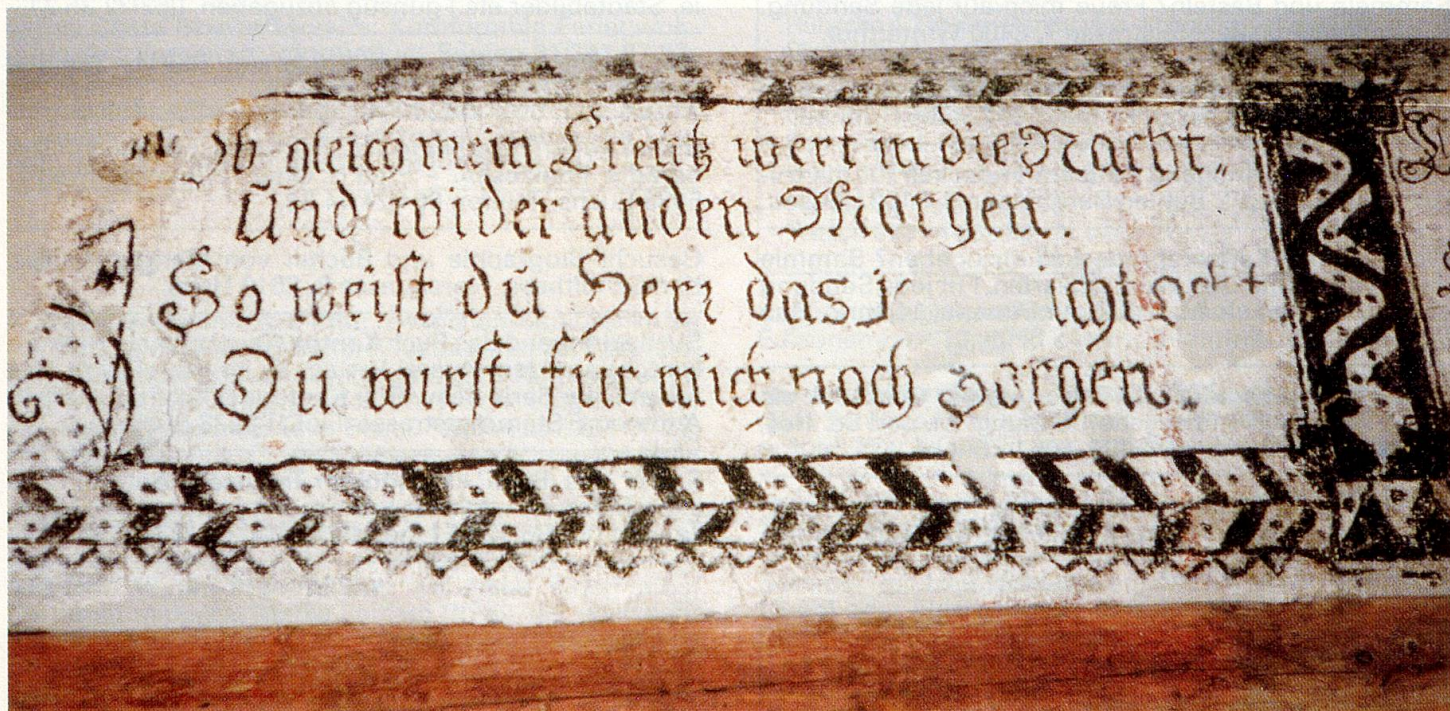 Ob gleich mein Creütz wert in die Nacht„
Und wider anden Morgen.
So weist dü Herr das
Dü wirst für mich noch Sorgen„